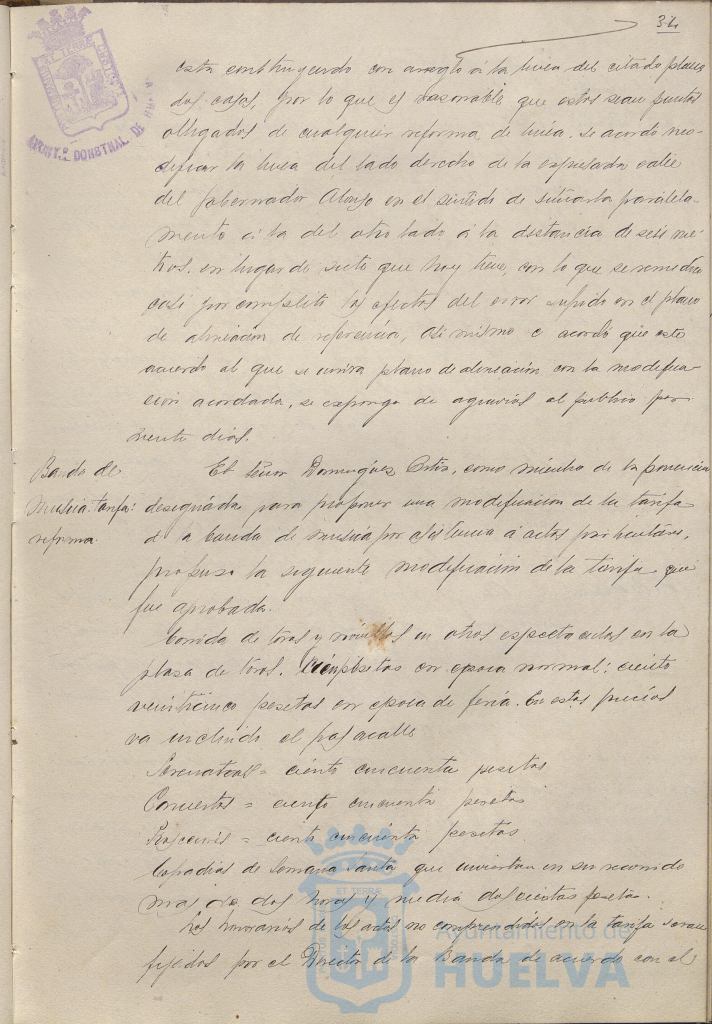 32
está construyendo con arreglo á la linea del citado plano
dos casas, por lo que es razonable que estos sean puntos
obligados de cualquier reforma de linea. Se acordó mo-
dificar la linea del lado derecho de la expresada calle
del Gobernador Alonso en el sentido de situarla paralela-
mente á la del otro lado á la distancia de seis me-
tros, en lugar de siete que hoy tiene, con lo que se remedia
casi por completo los efectos del error sufrido en el plano
de alineación de referencia, asi mismo se acordó que este
acuerdo al que se unira plano de alineación con la modifica-
ción acordada, se exponga de agravios al publico por
veinte dias.
Banda de
Musica. tarifa:
reforma.
El Señor Dominguez, como miembro de la ponencia
designada para proponer una modificacion de la tarifa
de la banda de musica por asistencia á actos particulares,
propuso la siguiente modificación de la tarifa que
fue aprobada.
Corrida de toros y novillos u otros espectaculos en la
plaza de toros. Cien pesetas en epoca normal; ciento
veinticinco pesetas en epoca de feria. En estos precios
va incluido el pasacalle
Serenatas = ciento cincuenta pesetas
Conciertos = ciento cincuenta pesetas
= ciento cincuenta pesetas
Cofradias de Semana Santa que inviertan en su recorrido
mas de dos horas y media doscientas pesetas.
Los honorarios de los actos no comprendidos en la tarifa seran
fijados por el Director de la Banda de acuerdo con el
Ayuntamiento de
HUELVA